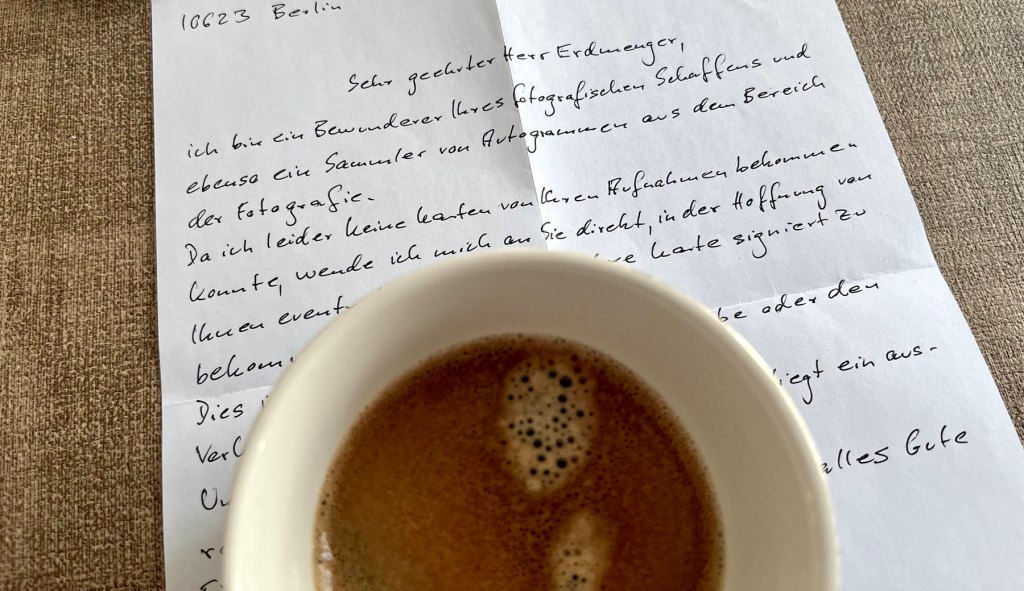 10623 Berlin
Sehr geehrter Herr Erdmenger,
ich bin ein Bewunderer Ihres fotografischen Schaffens und
ebenso ein Sammler von Autogrammen aus dem Bereich
der Fotografie.
Da ich leider keine Karten von Ihren Aufnahmen bekommen
konnte, wende ich mich an Sie direkt, in der Hoffnung von
Ihnen Karte signiert zu
oder den
Dies ein aus-
alles Gute